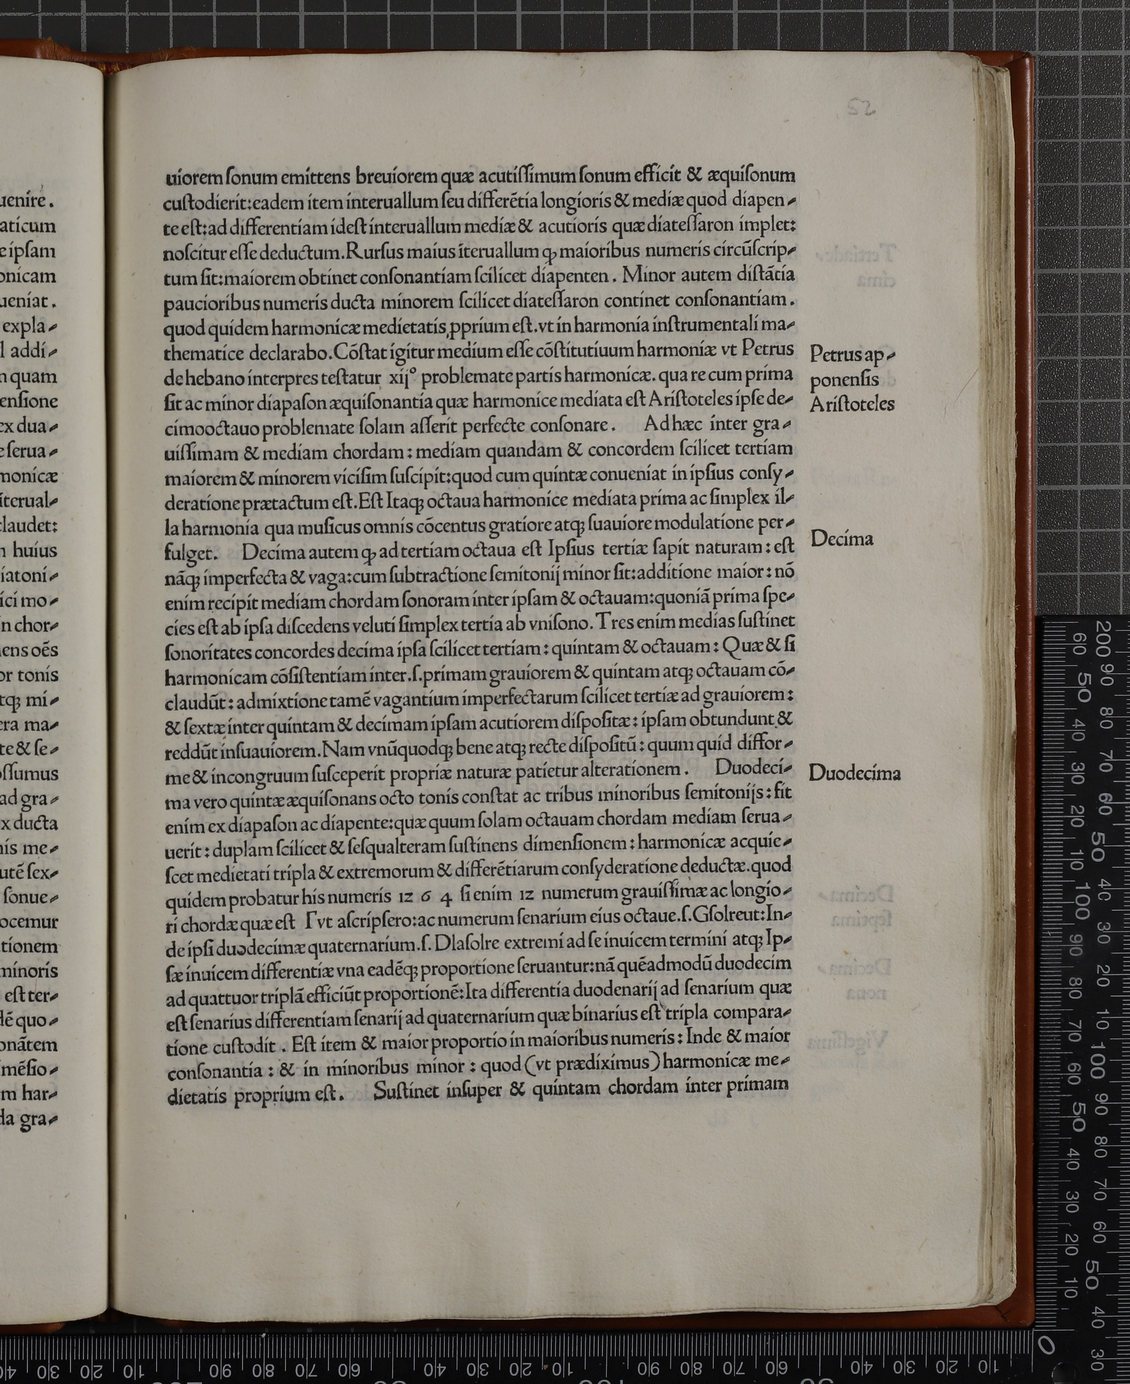 52
uiorem ſonum emittens breuiorem quæ acutiſſimum ſonum efficit & æquiſonum
cuſtodierit:eadem item interuallum ſeu differẽtia longioris & mediæ quod diapen-
te eſt:ad differentiam ideſt interuallum mediæ & acutioris quæ diateſſaron implet:
noſcitur eſſe deductum.Rurſus maius ĩteruallum ꝙ maioribus numeris circũſcrip-
tum ſit:maiorem obtinet conſonantiam ſcilicet diapenten. Minor autem diſtãtia
paucioribus numeris ducta minorem ſcilicet diateſſaron continet conſonantiam.
quod quidem harmonicæ medietatis ꝓprium eſt.vt in harmonia inſtrumentali ma-
thematice declarabo.Cõſtat igitur medium eſſe cõſtitutiuum harmoniæ vt Petrus
de hebano interpres teſtatur xij° problemate partis harmonicæ. qua re cum prima
ſit ac minor diapaſon æquiſonantia quæ harmonice mediata eſt Ariſtoteles ipſe de-
cimooctauo problemate ſolam aſſerit perfecte conſonare. Ad hæc inter gra-
uiſſimam & mediam chordam: mediam quandam & concordem ſcilicet tertiam
maiorem & minorem viciſim ſuſcipit:quod cum quintæ conueniat in ipſius conſy-
deratione prætactum eſt.Eſt Itaqꝫ octaua harmonice mediata prima ac ſimplex il-
la harmonia qua muſicus omnis cõcentus gratiore atqꝫ ſuauiore modulatione per-
fulget. Decima autem ꝙ ad tertiam octaua eſt Ipſius tertiæ ſapit naturam: eſt
nãqꝫ imperfecta & vaga:cum ſubtractione ſemitonij minor ſit:additione maior: nõ
enim recipit mediam chordam ſonoram inter ipſam & octauam:quoniã prima ſpe-
cies eſt ab ipſa diſcedens veluti ſimplex tertia ab vniſono.Tres enim medias ſuſtinet
ſonoritates concordes decima ipſa ſcilicet tertiam: quintam & octauam: Quæ & ſi
harmonicam cõſiſtentiam inter.ſ.primam grauiorem & quintam atqꝫ octauam cõ-
claudũt: admixtione tamẽ vagantium imperfectarum ſcilicet tertiæ ad grauiorem:
& ſextæ inter quintam & decimam ipſam acutiorem diſpoſitæ: ipſam obtundunt &
reddũt inſuauiorem.Nam vnũquodqꝫ bene atqꝫ recte diſpoſitũ: quum quid diffor-
me & incongruum ſuſceperit propriæ naturæ patietur alterationem. Duodeci-
ma vero quintæ æquiſonans octo tonis conſtat ac tribus minoribus ſemitonijs: ſit
enim ex diapaſon ac diapente:quæ quum ſolam octauam chordam mediam ſerua-
uerit: duplam ſcilicet & ſeſqualteram ſuſtinens dimenſionem: harmonicæ acquie-
ſcet medietati tripla & extremorum & differẽtiarum conſyderatione deductæ.quod
quidem probatur his numeris 12 6 4 ſi enim 12 numerum grauiſſimæ ac longio-
ri chordæ quæ eſt Γvt aſcripſero:ac numerum ſenarium eius octaue.ſ.Gſolreut:In-
de ipſi duodecimæ quaternarium.ſ. Dlaſolre extremi ad ſe inuicem termini atqꝫ Ip-
ſæ inuicem differentiæ vna eadẽqꝫ proportione ſeruantur:nã quẽadmodũ duodecim
ad quattuor triplã efficiũt proportionẽ:Ita differentia duodenarij ad ſenarium quæ
eſt ſenarius differentiam ſenarij ad quaternarium quæ binarius eſt tripla compara-
tione cuſtodit. Eſt item & maior proportio in maioribus numeris: Inde & maior
conſonantia: & in minoribus minor: quod (vt prædiximus) harmonicæ me-
dietatis proprium eſt. Suſtinet inſuper & quintam chordam inter primam
Petrus ap-
ponenſis
Ariſtoteles
Decima
Duodecima